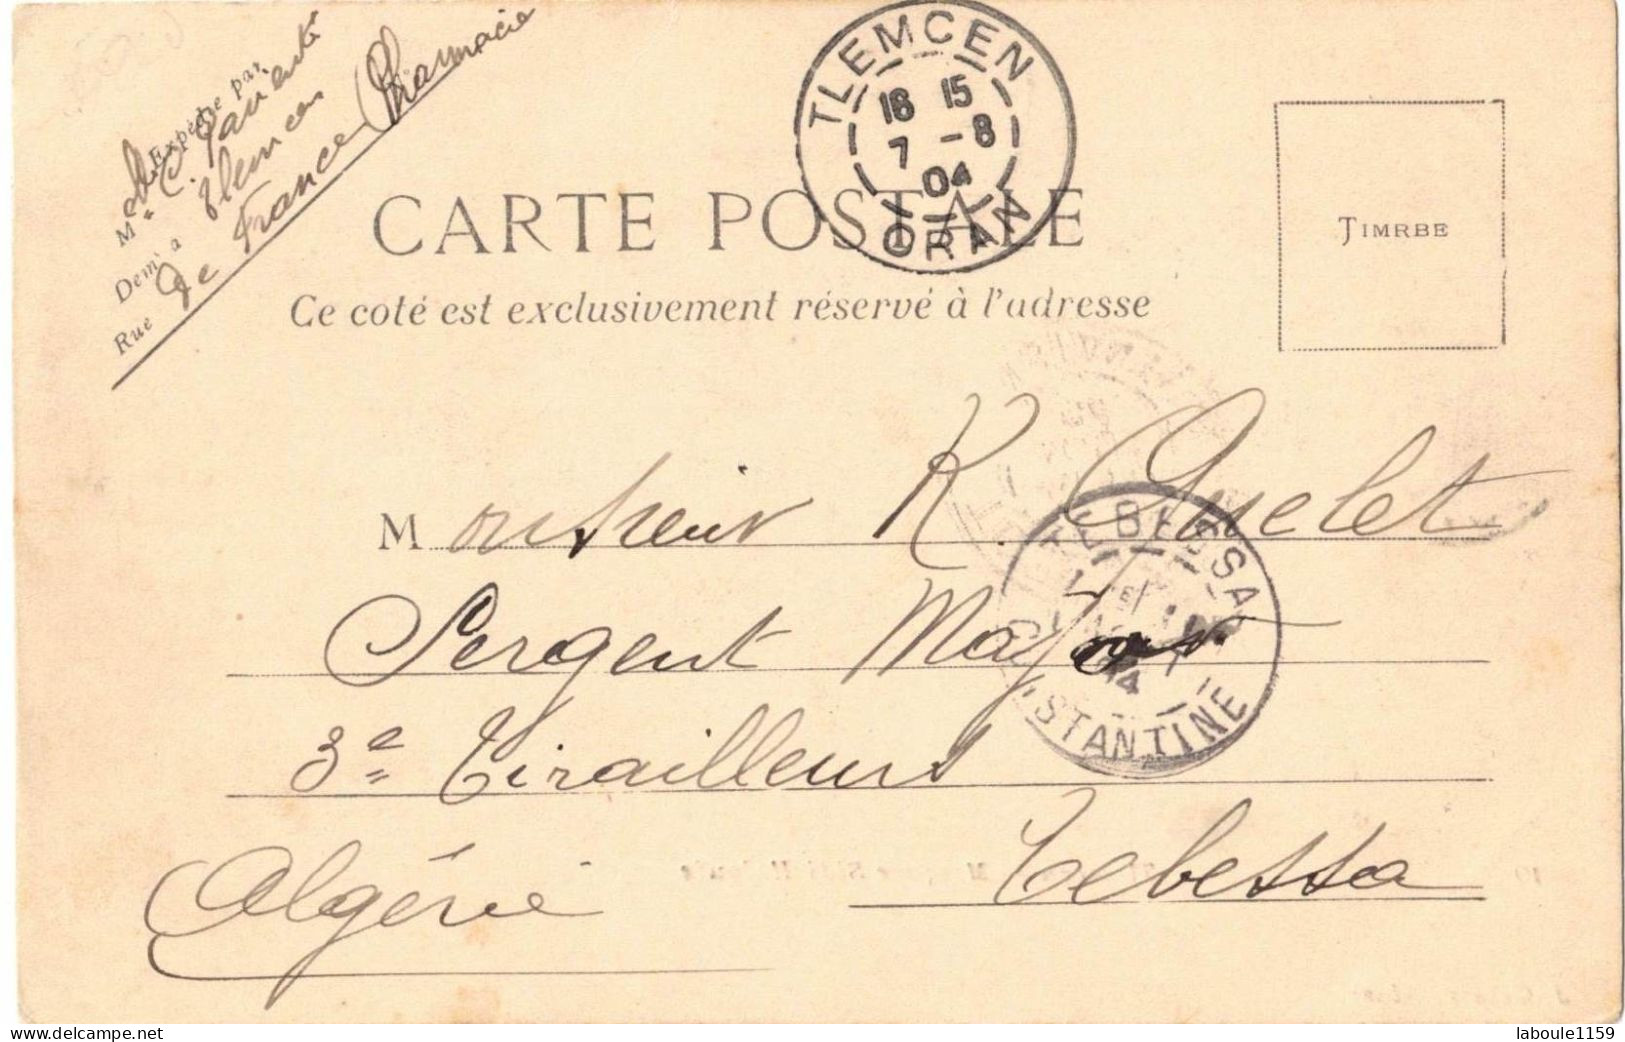 Expédié par
M
Dem<sup>t</sup> à Tlemcen
Rue de France Pharmacie
TLEMCEN
18 15
7 -8
04
ORAN
CARTE POSTALE
Ce coté est exclusivement réservé à l'adresse
TIMRBE
Monsieur R. Guelet
TEBESSA
Sergent Major
'STANTINE
3e Tirailleurs
Tebessa
Algérie
delcampe.net
laboule1159